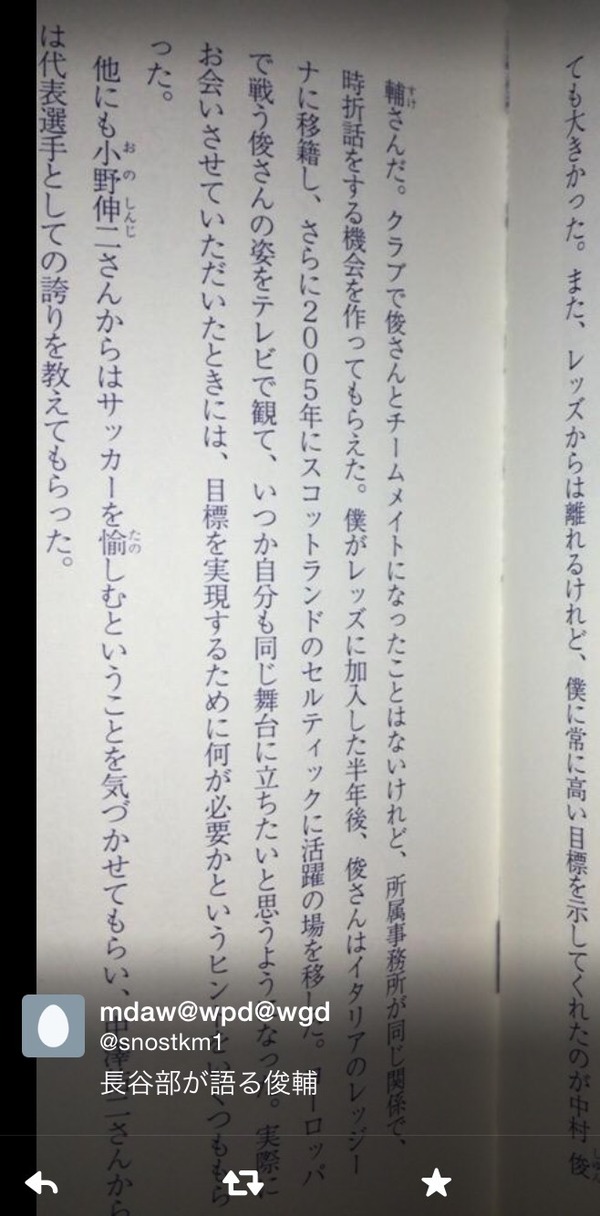 ても大きかった。また、レッズからは離れるけれど、僕に常に高い目標を示してくれたのが中村 俊
輔さんだ。クラブで俊さんとチームメイトになったことはないけれど、所属事務所が同じ関係で、
時折話をする機会を作ってもらえた。僕がレッズに加入した半年後、俊さんはイタリアのレッジー
ナに移籍し、さらに2005年にスコットランドのセルティックに活躍の場を移した。ーロッパ
で戦う俊さんの姿をテレビで観て、いつか自分も同じ舞台に立ちたいと思うようになった。実際に
お会いさせていただいたときには、目標を実現するために何が必要かというヒントをいくつももら
った。
他にも小野伸二さんからはサッカーを愉しむということを気づかせてもらい、中澤二さんから
は代表選手としての誇りを教えてもらった。
すけ
おのしんじ
たの
mdaw@wpd@wgd
@snostkm1
長谷部が語る俊輔